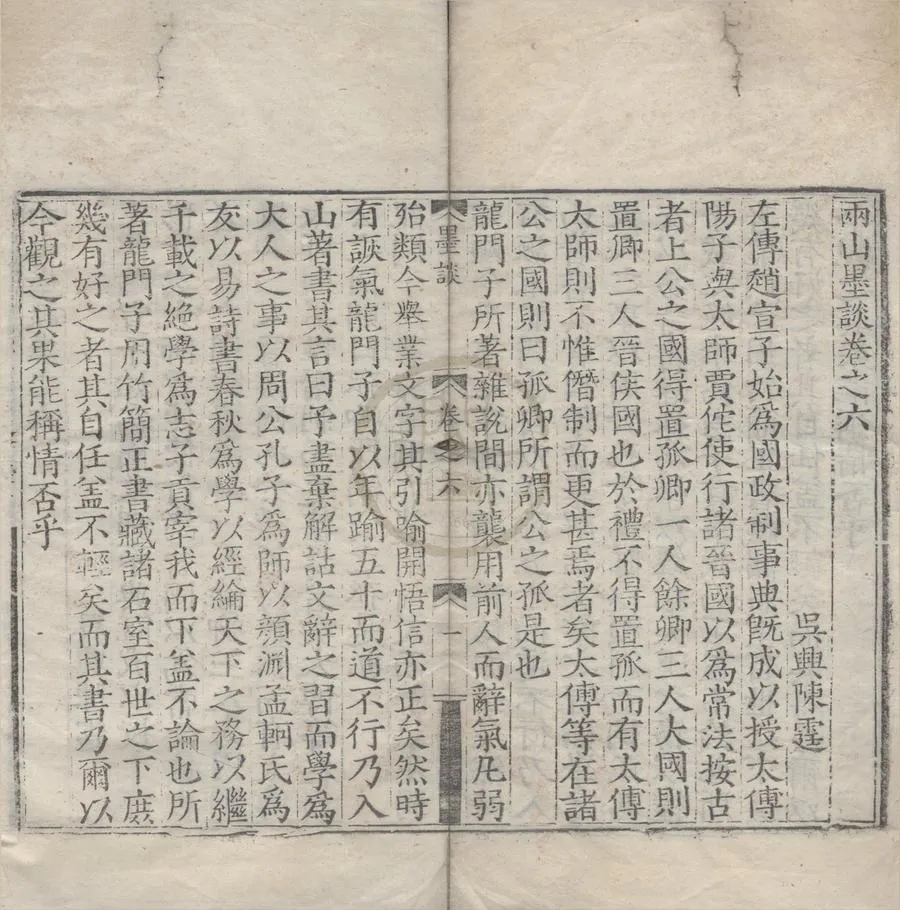 兩山墨談卷之六
吳興陳霆
左傳趙宣子始爲國政制事典旣成以授太傅
陽子與太師賈佗使行諸晉國以爲常法按古
者上公之國得置孤卿一人餘卿三人大國則
置卿三人晉侯國也於禮不得置孤而有太傅
太師則不惟僭制而更甚焉者矣太傅等在諸
公之國則曰孤卿所謂公之孤是也
龍門子所著雜說間亦襲用前人而辭氣凡弱
墨談 卷之六 一
殆類今舉業文字其引喻開悟信亦正矣然時
有誇氣龍門子自以年踰五十而道不行乃入
山著書其言曰予盡棄解詁文辭之習而學爲
大人之事以周公孔子爲師以顔淵孟軻氏爲
友以易詩書春秋爲學以經綸天下之務以繼
千載之絕學爲志子貢宰我而下盖不論也所
著龍門子用竹簡正書藏諸石室百世之下庶
幾有好之者其自任盖不輕矣而其書乃爾以
今觀之其果能稱情否乎